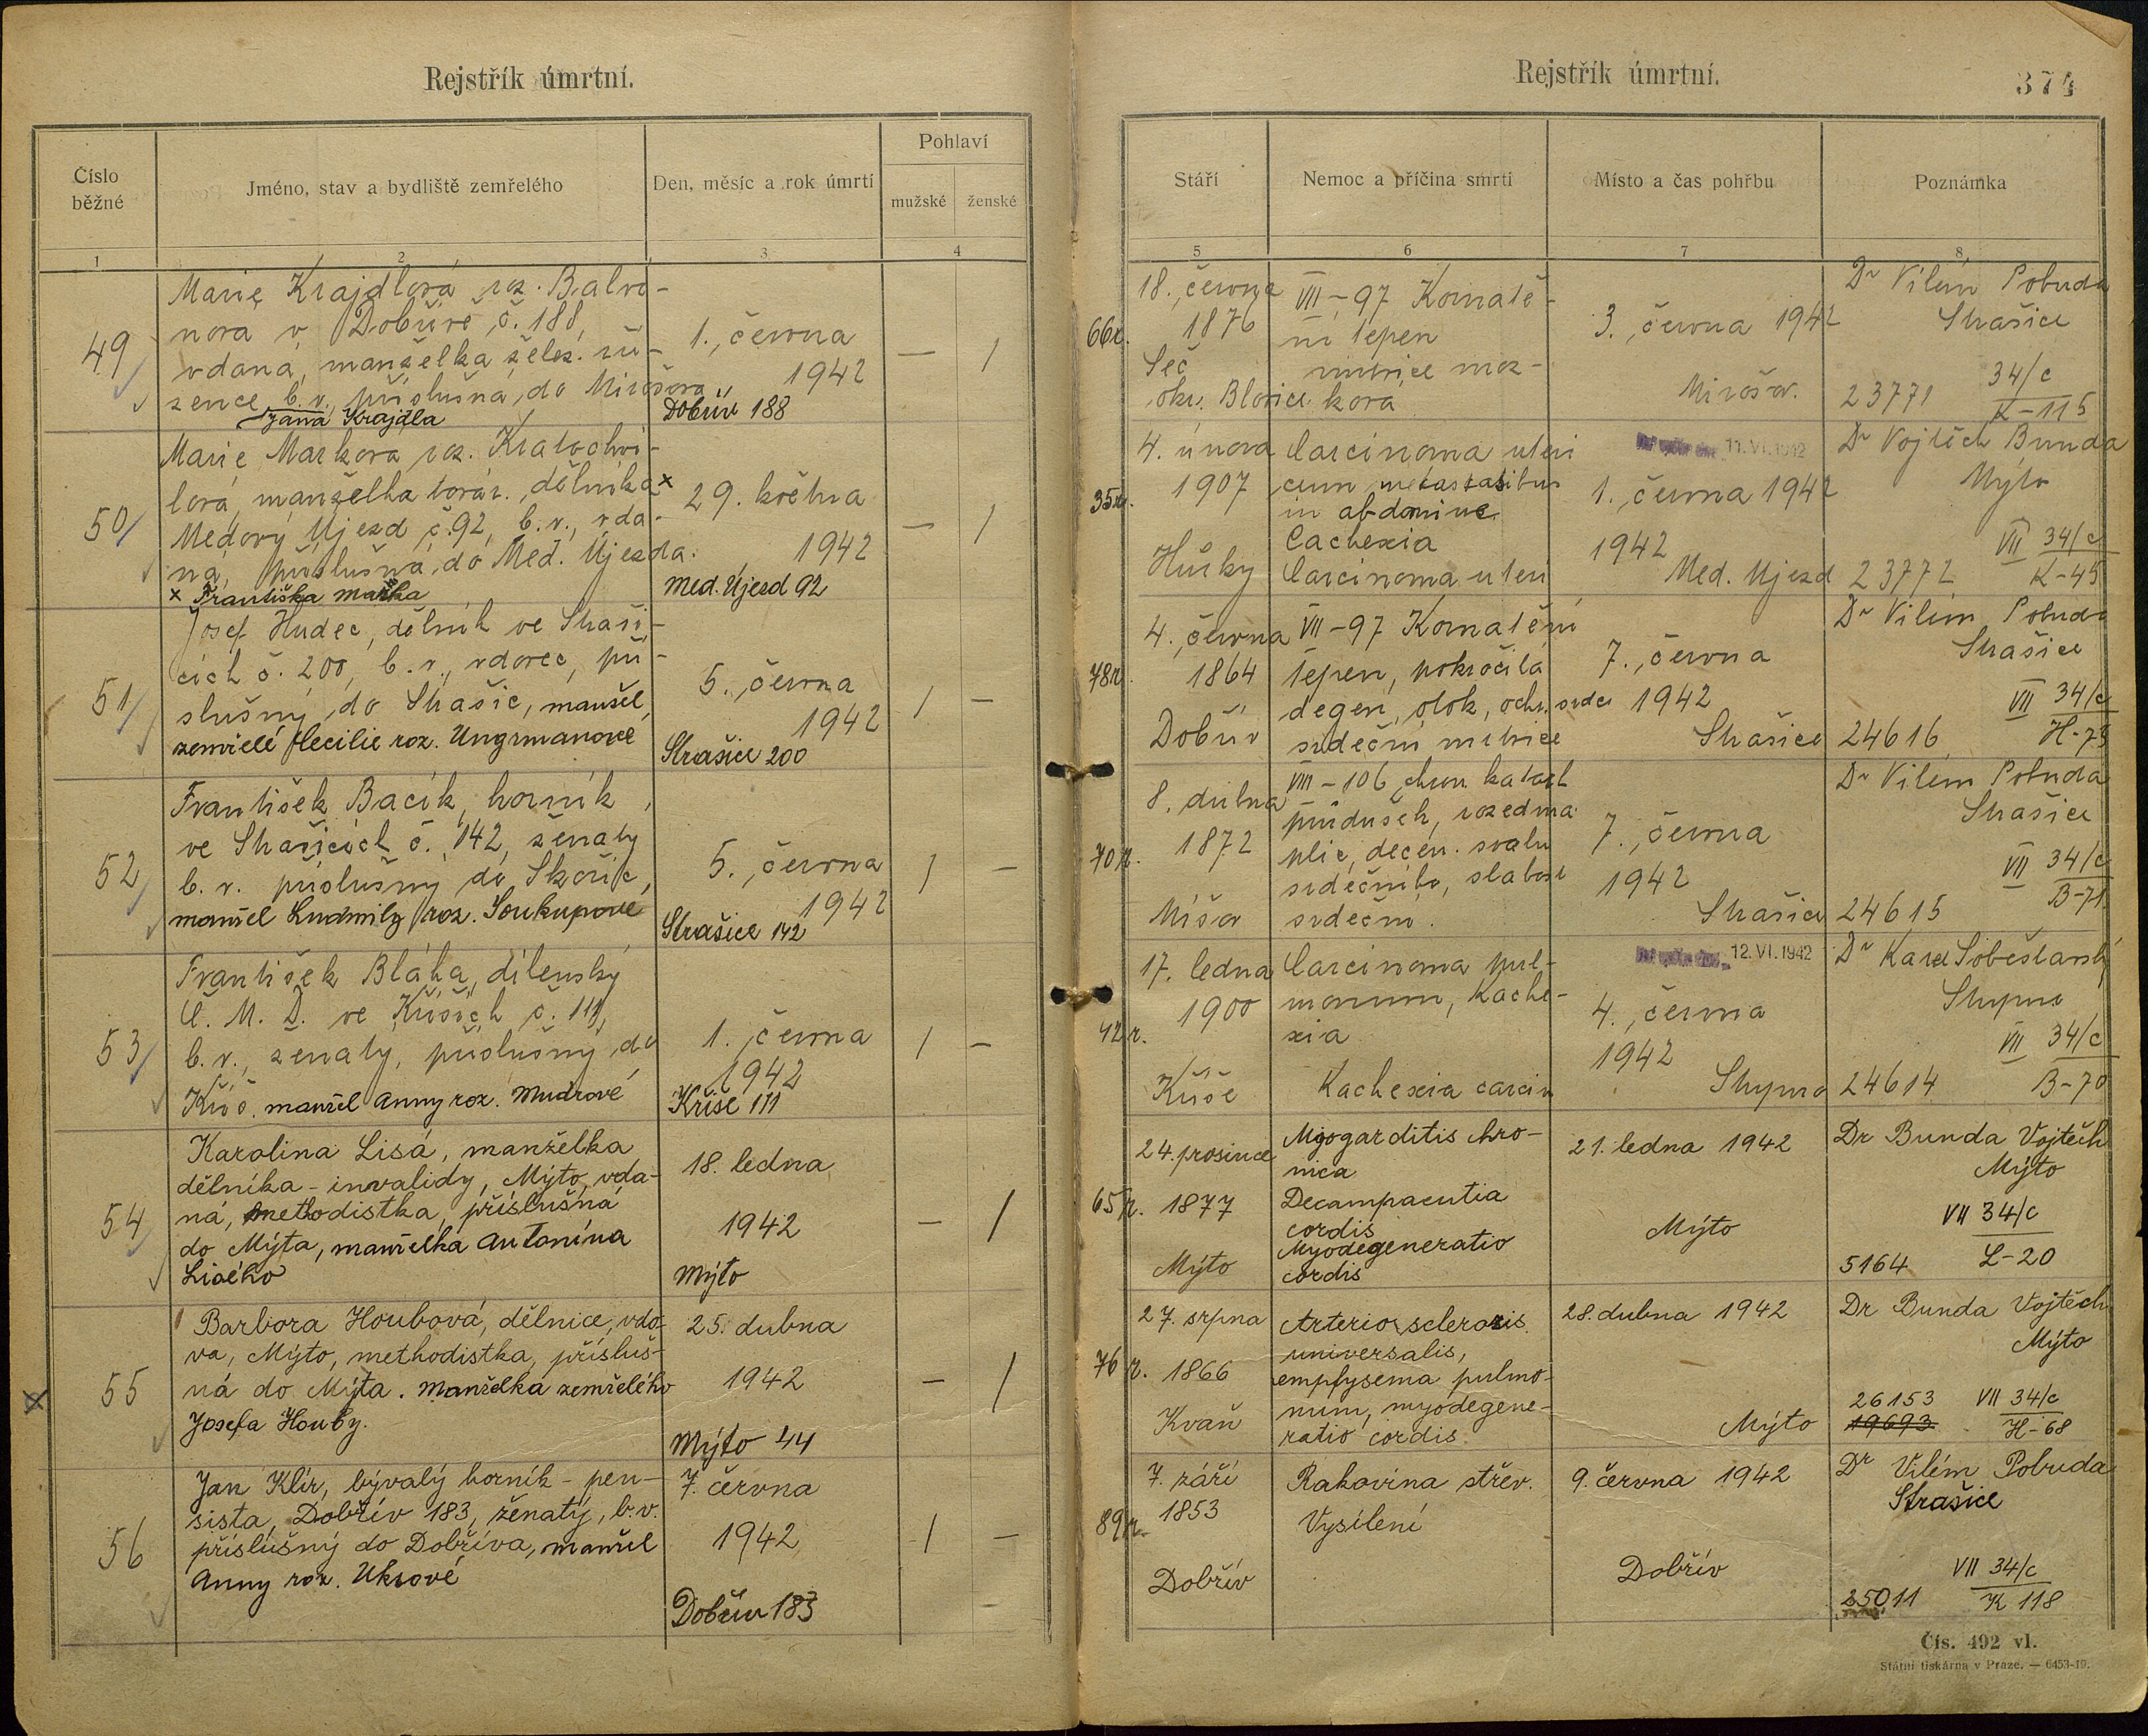 Rejstřík úmrtní.
Číslo běžné
Jméno, stav a bydliště zemřelého
Den, měsíc a rok úmrtí
Pohlaví
mužské
ženské
1
2
3
4
49
Marie Krajdlová roz. Balvi-
nova v Dobřívě č. 188,
vdaná, manželka želez. zří-
zence b.v. příslušná do Mirošova
Jana Krajdla
1. června
1942
Dobřív 188
—
1
50
Marie Markova roz. Kratochvi-
lová, manželka továr. dělníka x
Medový Újezd č. 92, b.v., vda-
ná, příslušná do Med. Újezda.
x Františka Marka
29. května
1942
Med. Újezd 92
—
1
51
Josef Hudec, dělník ve Straši-
cích č. 200, b.v., vdovec, pří-
slušný do Strašic, manžel
zemřelé Cecilie roz. Ungrmanové
5. června
1942
Strašice 200
1
—
52
František Bacík, horník,
ve Strašicích č. 142, ženatý
b.v. příslušný do Skořic,
manžel Ludmily roz. Soukupové
5. června
1942
Strašice 142
1
—
53
František Bláha, dílenský
Č. M. D. ve Kříších č. 111,
b.v., ženatý, příslušný do
Kříš. manžel Anny roz. Mudrové
1. června
1942
Kříše 111
1
—
54
Karolina Lisá, manželka
dělníka - invalidy, Mýto, vda-
ná, methodistka, příslušná
do Mýta, manželka Antonína
Lisého
18. ledna
1942
Mýto
—
1
55
Barbora Houbová, dělnice, vdo-
va, Mýto, methodistka, přísluš-
ná do Mýta. Manželka zemřelého
Josefa Houby.
25. dubna
1942
Mýto 44
—
1
56
Jan Klír, bývalý horník - pen-
sista, Dobřív 183, ženatý, b.v.
příslušný do Dobříva, manžel
Anny roz. Uksové
7. června
1942
Dobřív 183
1
—
Rejstřík úmrtní.
374
Stáří
Nemoc a příčina smrti
Místo a čas pohřbu
Poznámka
5
6
7
8
66r.
18. června
1876
Seč
okr. Blovice
VII - 97 Kornatě-
ní tepen
mrtvice moz-
ková
3. června 1942
Mirošov.
Dr Vilém Pobuda
Strašice
34/c
23771
K-115
35r.
4. února
1907
Hůrky
Carcinoma uteri
cum metastasibus
in abdomine
Cachexia
Carcinoma uteri
11.VI.1942
1. června 1942
1942
Med. Újezd
Dr Vojtěch Bunda
Mýto
VII 34/c
23772
K-45
78r.
4. června
1864
Dobřív
VII - 97 Kornatění
tepen, pokročilá
degen, otok, ochr. srdce
srdeční mrtvice
7. června
1942
Strašice
Dr Vilém Pobuda
Strašice
VII 34/c
24616
H-73
70r.
8. dubna
1872
Mišov
VIII - 106 chron katarh
průdušek, rozedma
plic, degen. svalu
srdečního, slabost
srdeční.
7. června
1942
Strašice
Dr Vilém Pobuda
Strašice
VII 34/c
24615
B-71
42r.
17. ledna
1900
Kříše
Carcinoma pul-
monum, Kache-
xia
Kachexia carcin
12.VI.1942
4. června
1942
Stupno
Dr Karel Soběslavský
Stupno
VII 34/c
24614
B-70
65r.
24. prosince
1877
Mýto
Myogarditis chro-
nica
Decampacutia
cordis
Myodegeneratio
cordis
21. ledna 1942
Mýto
Dr Bunda Vojtěch
Mýto
VII 34/c
5164
L-20
76r.
27. srpna
1866
Kvaň
Arteriosclerosis
universalis,
empfysema pulmo-
num, myodegene-
ratio cordis.
28. dubna 1942
Mýto
Dr Bunda Vojtěch
Mýto
26153 VII 34/c
19693
H-68
89r.
7. září
1853
Dobřív
Rakovina střev.
Vysílení
9. června 1942
Dobřív
Dr Vilém Pobuda
Strašice
VII 34/c
25011
K 118
Čís. 492 vl.
Státní tiskárna v Praze. — 6453-19.